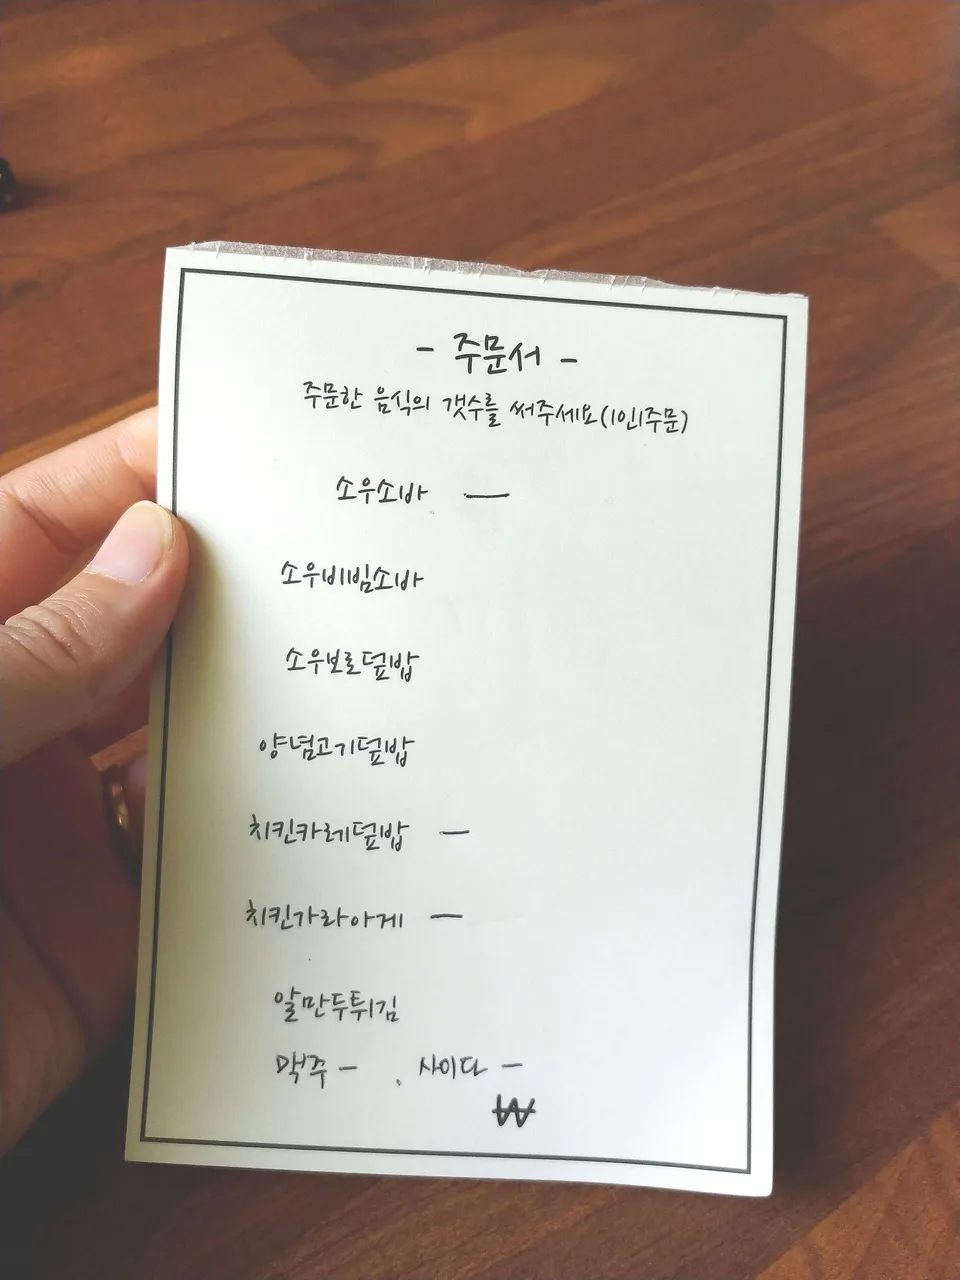 - 주문서 -
주문한 음식의 갯수를 써주세요(1인1주문)
소우소바 —
소우비빔소바
소우보로덮밥
양념고기덮밥
치킨카레덮밥 —
치킨가라아게 —
알만두튀김
맥주 - . 사이다 -
₩